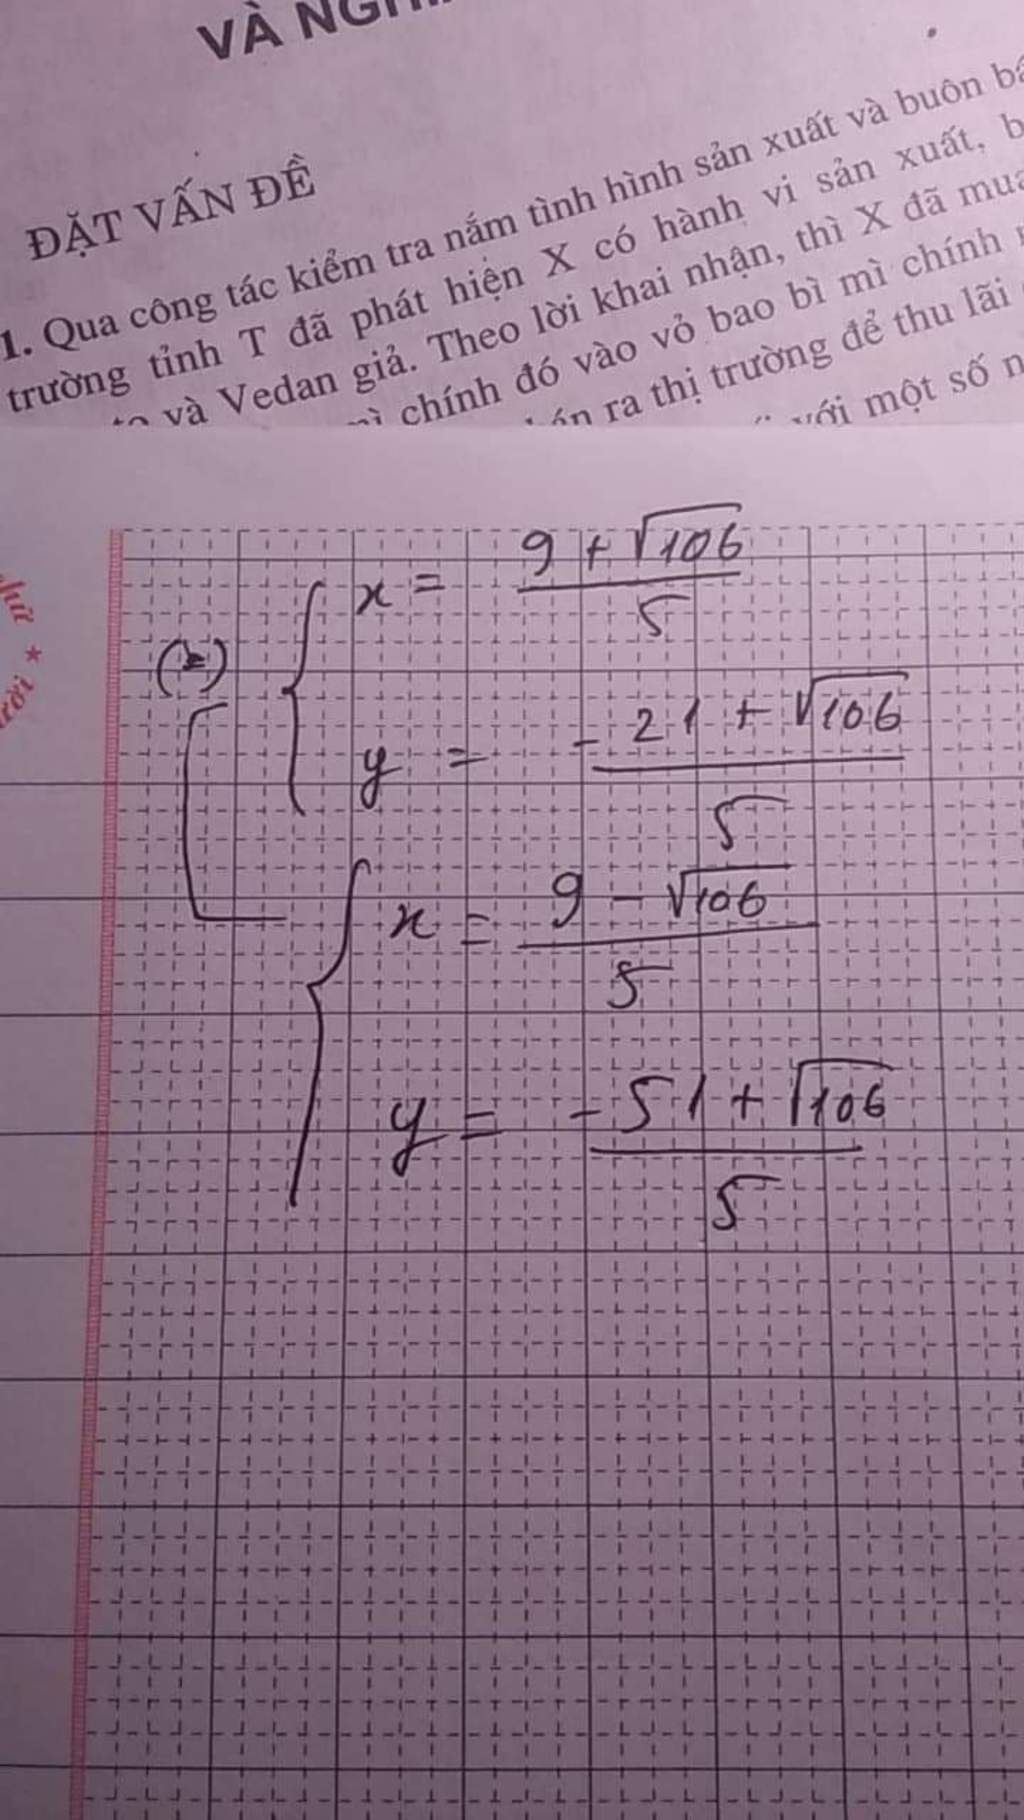 VÀ NGH
ĐẶT VẤN ĐỀ
1. Qua công tác kiểm tra nắm tình hình sản xuất và buôn bá
trường tỉnh T đã phát hiện X có hành vi sản xuất, b
và Vedan giả. Theo lời khai nhận, thì X đã mua
chính đó vào vỏ bao bì mì chính
ra thị trường để thu lãi
với một số n
x = (9 + √106)/5
y = (-21 + √106)/5
x = (9 - √106)/5
y = (-51 + √106)/5